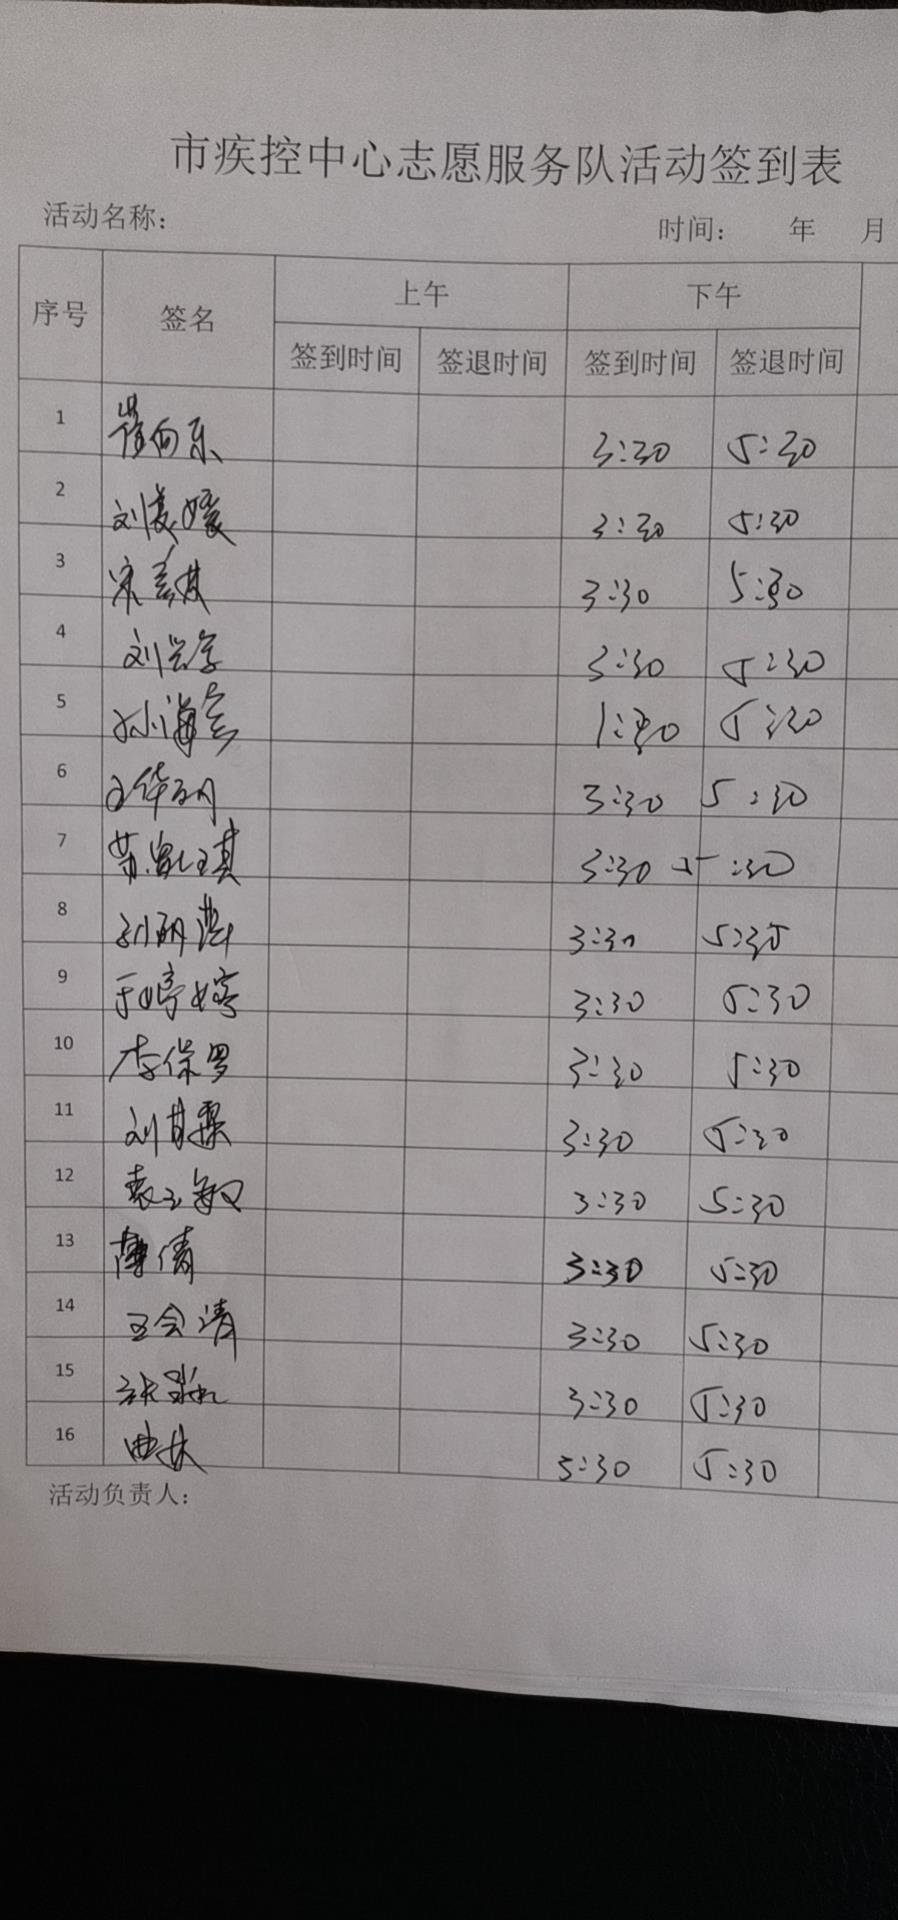 市疾控中心志愿服务队活动签到表
活动名称： 时间： 年 月
序号 签名 上午 下午
签到时间 签退时间 签到时间 签退时间
1 崔向东 3:30 5:30
2 刘媛 3:30 5:30
3 宋 3:30 5:30
4 刘 3:30 5:30
5 孙海 1:30 5:30
6 王华 3:30 5:30
7 琪 3:30 5:30
8 丽 3:30 5:30
9 于婷婷 3:30 5:30
10 李保罗 3:30 5:30
11 刘甘霖 3:30 5:30
12 袁玉敏 3:30 5:30
13 倩 3:30 5:30
14 王会清 3:30 5:30
15 张 3:30 5:30
16 曲 3:30 5:30
活动负责人：